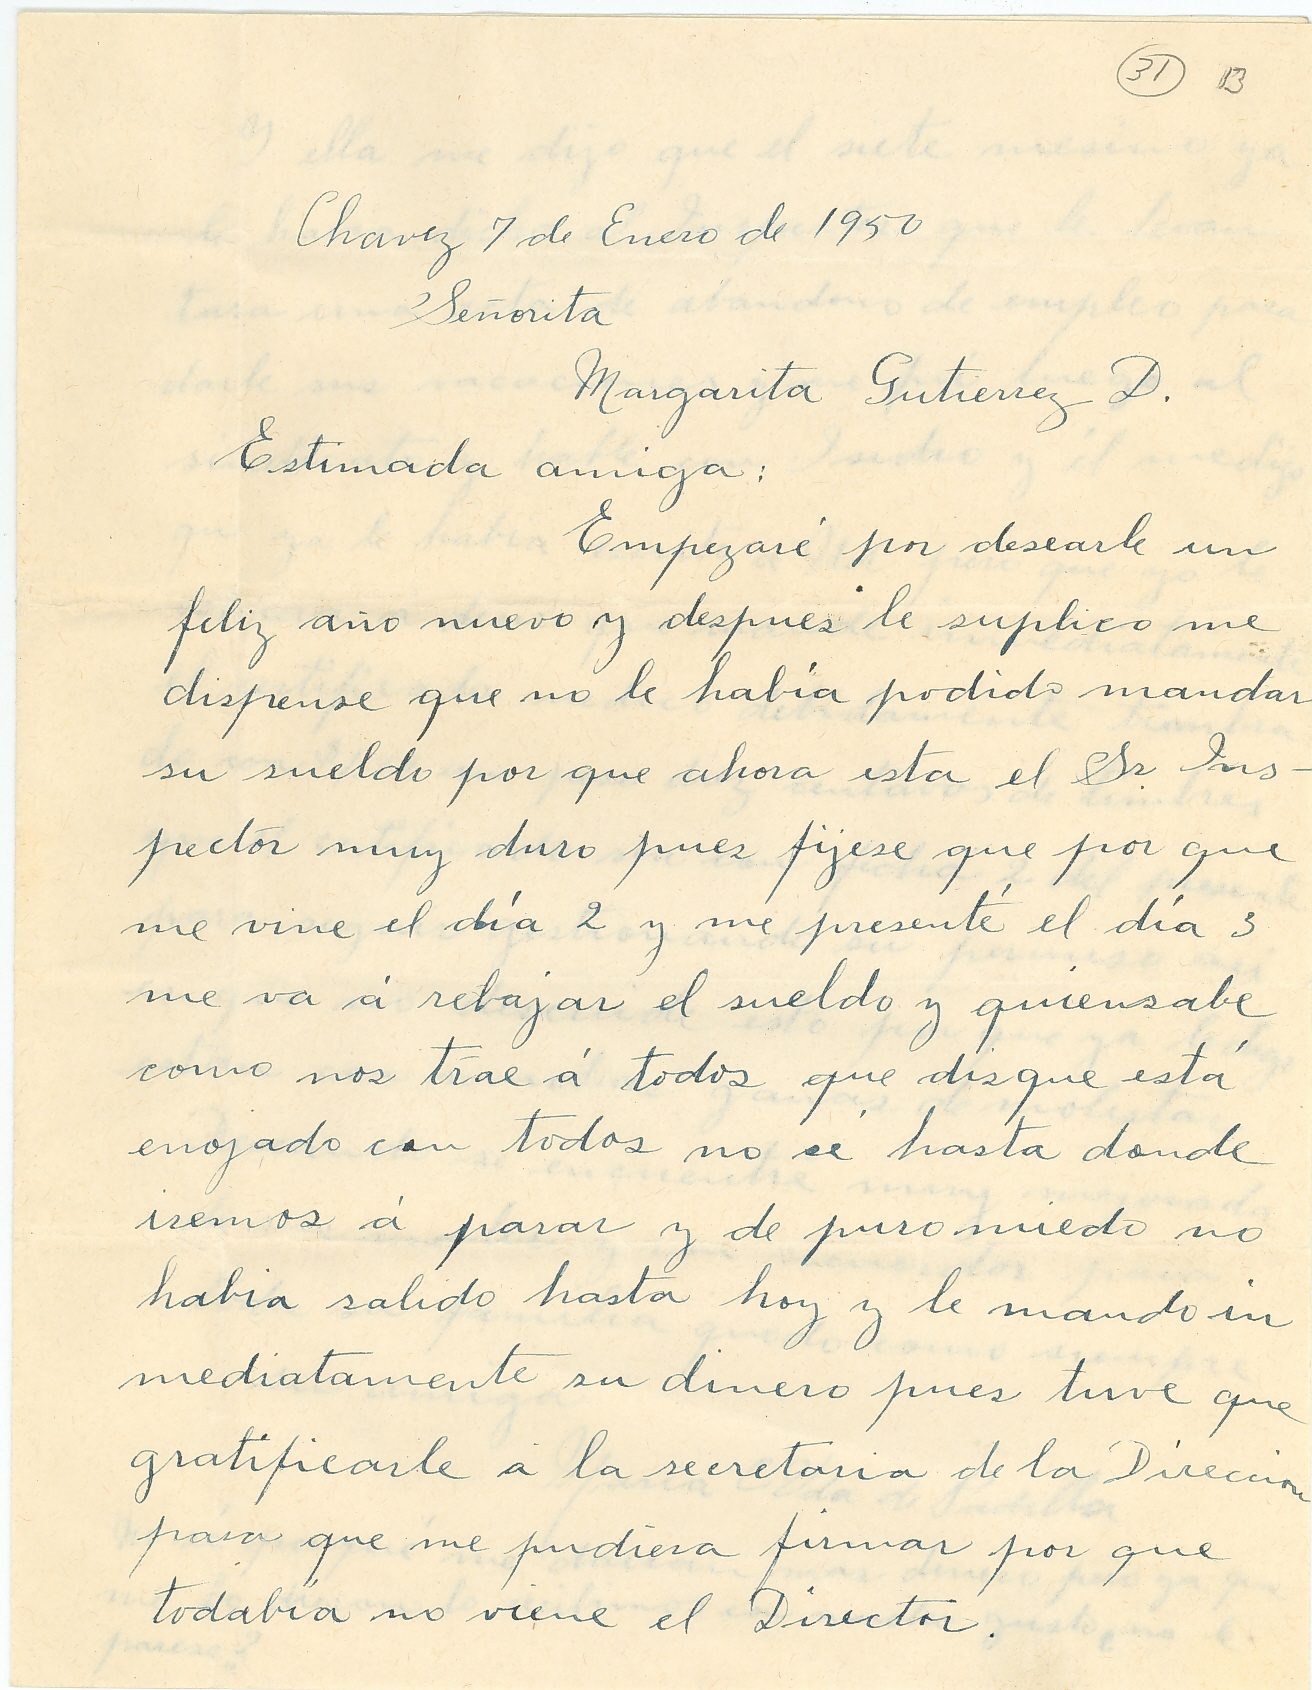 31 B
Chavez 7 de Enero de 1950
Señorita
Margarita Gutierrez D.
Estimada amiga:
Empezaré por desearle un
feliz año nuevo y despues le suplico me
dispense que no le había podido mandar
su sueldo por que ahora esta el Sr. Ins-
pector muy duro pues fijese que por que
me vine el día 2 y me presenté el día 3
me va á rebajar el sueldo y quiensabe
como nos trae á todos que disque está
enojado con todos no sé hasta donde
iremos á parar y de puro miedo no
habia salido hasta hoy y le mando in
mediatamente su dinero pues tuve que
gratificarle a la secretaria de la Direccion
para que me pudiera firmar por que
todabia no viene el Director.